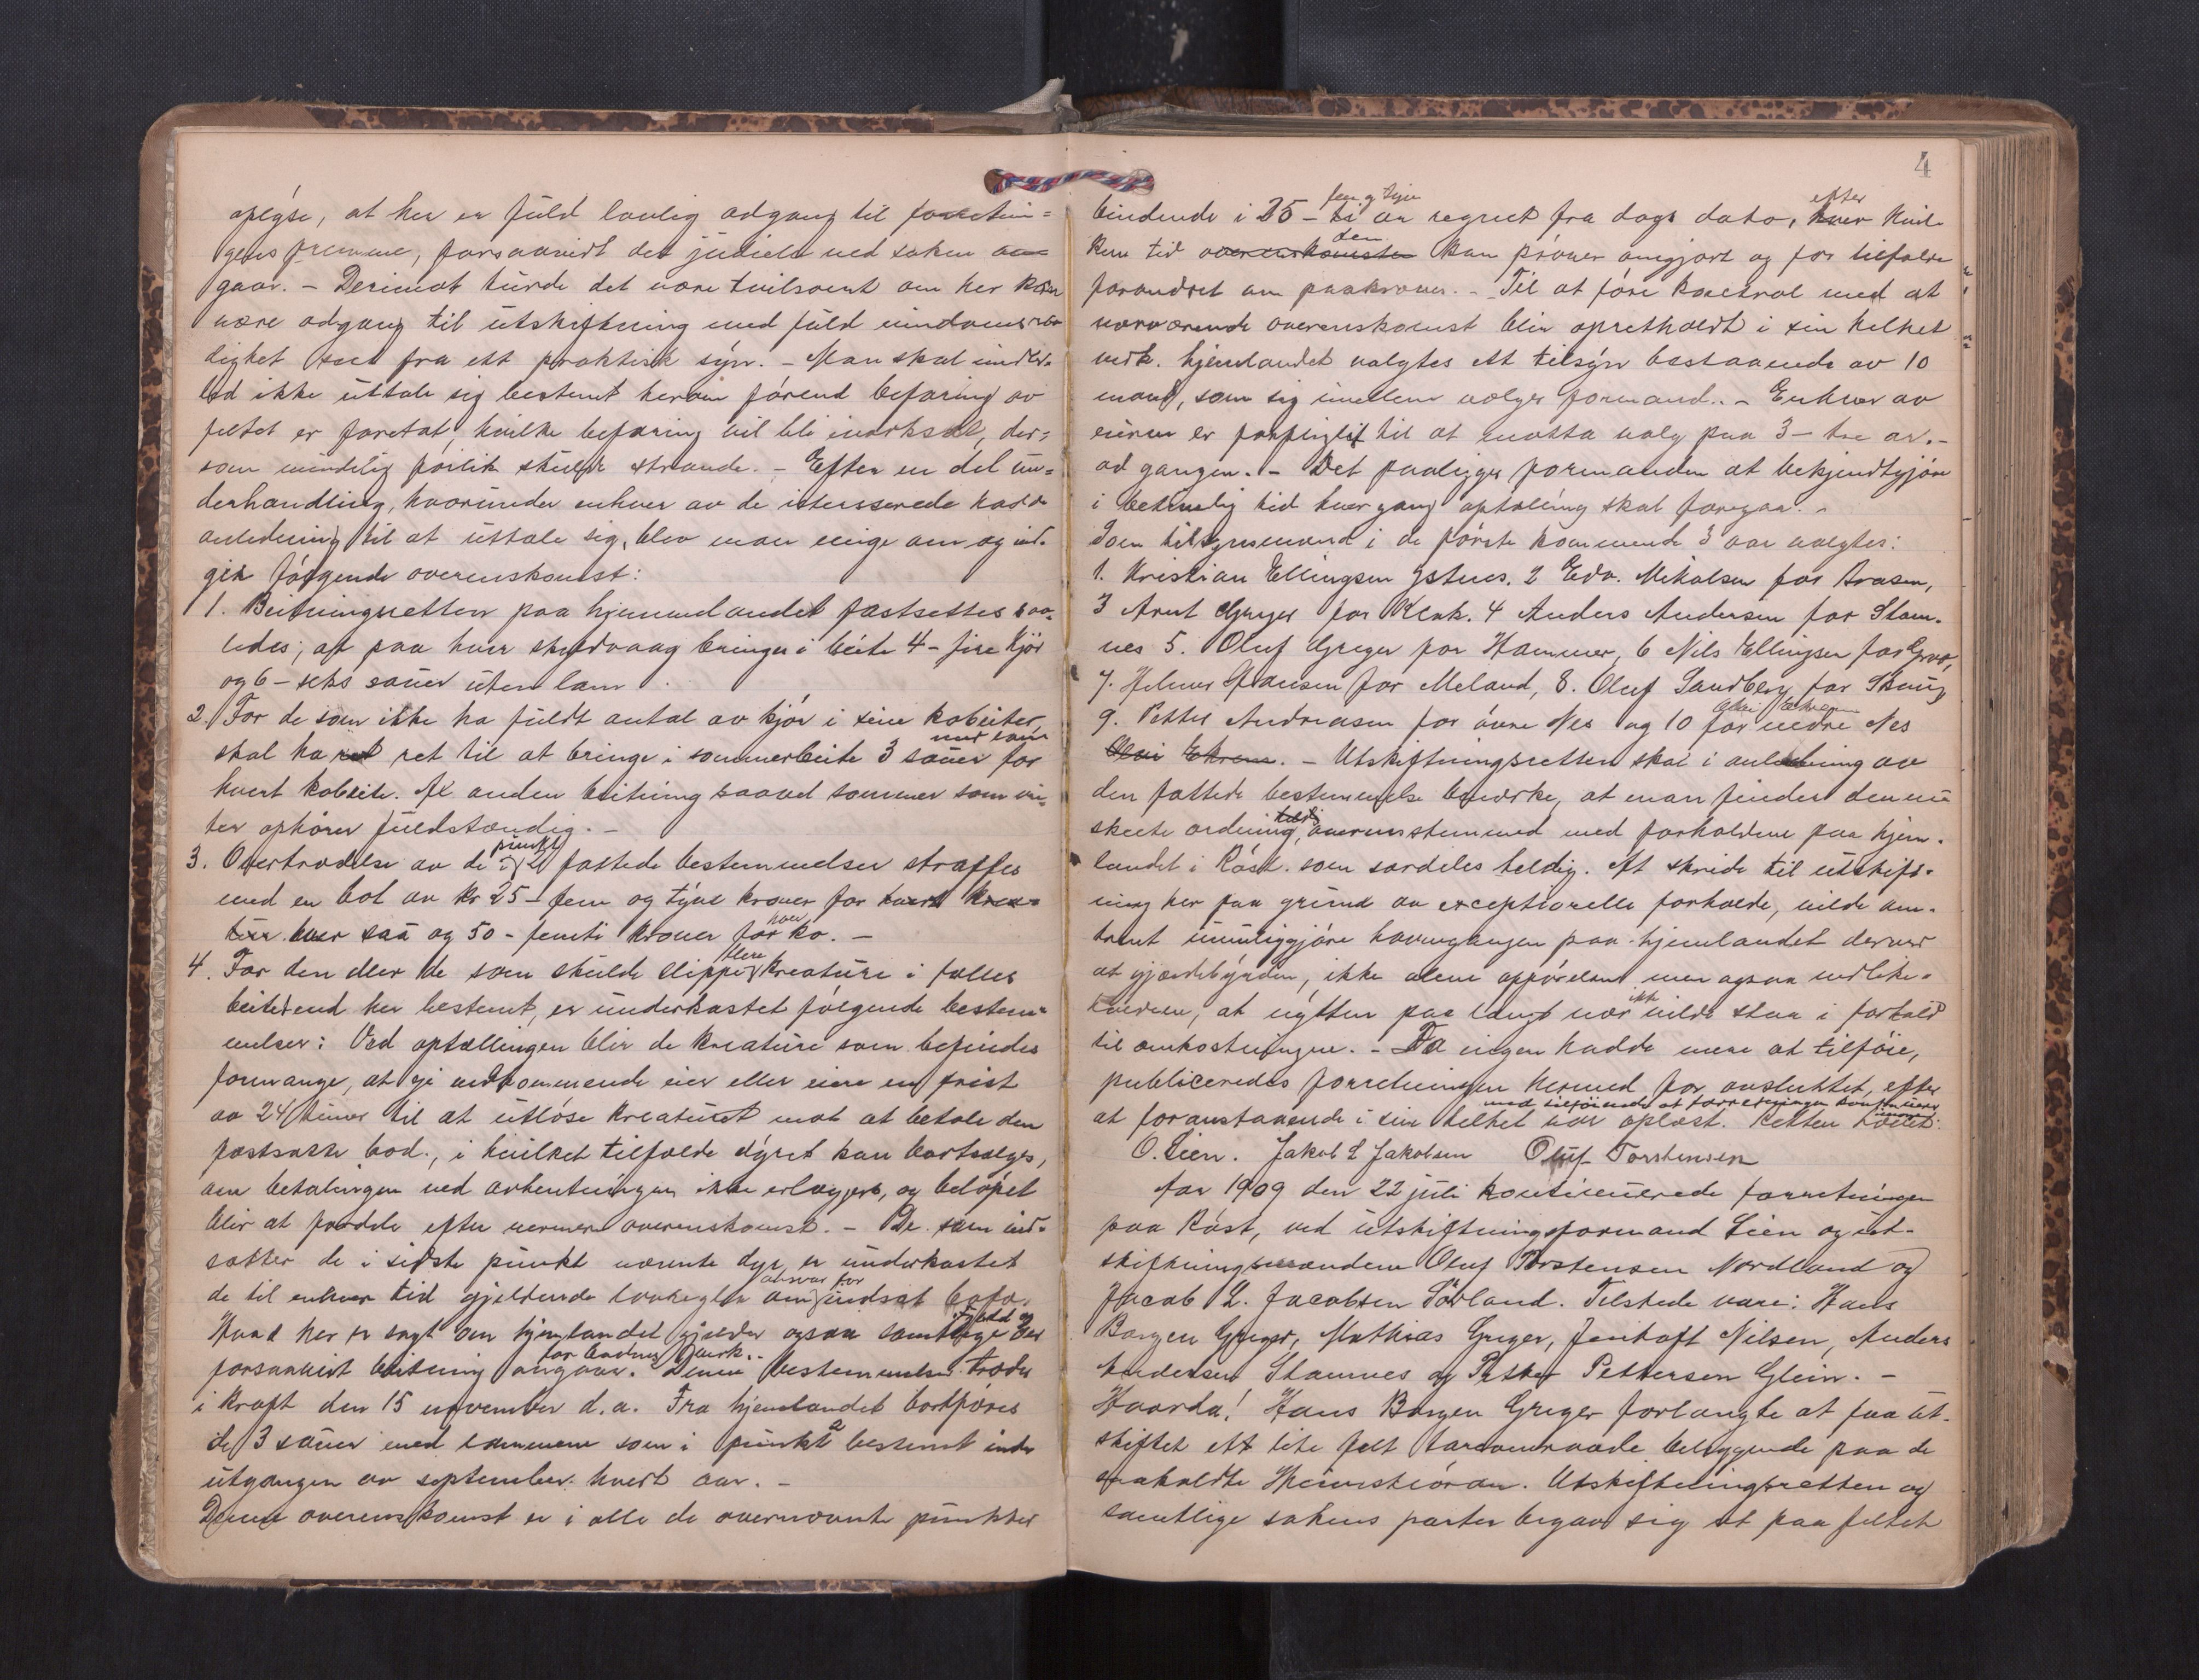 oplyse, at her er fuld lovlig adgang til forretnin=
gens fremme, forsaavidt det judicielle ved saken an=
gaar. – Derimot turde det være tvilsomt om her kan
være adgang til utskiftning med fuld eindoms
dighet set fra ett praktisk syn. – Man skal imidler-
tid ikke uttale sig bestemt herom førend befaring av
feltet er foretat, hvilke befaring vil bli iverksat, der=
som mindelig forlik skulde strande. – Efter en del un=
derhandling, hvorunder enhver av de interesserede hadde
anledning til at uttale sig, blev man enige om og ind-
gik følgende overenskomst:
1. Beitningsretten paa hjemmelandet fastsettes saa-
ledes; at paa hver skyldvaag bringes i beite 4 – fire kjør
og 6 – seks sauer uten lam.
2. For de som ikke ha fuldt antal av kjør i sine kobeiter,
skal ha ret til at bringe i sommerbeite 3 sauer med lam for
hvert kobeite. Al anden beitning saavel sommer som vin-
ter ophører fuldstændig. –
3. Overtrædelse av de i punkt 2 fattede bestemmelser straffes
med en bot av kr 25 – fem og tyve kroner for hvert krea-
tur hver sau og 50 – femti kroner for hver ko. –
4. For den eller de som skulde slippe flere kreature i felles
beite end her bestemt, er underkastet følgende bestem=
melser: Ved optællingen blir de kreature som befindes
formange, at gi vedkommende eier eller eiere en frist
av 24 timer til at utløse kreaturet mot at betale den
fastsatte bod., i hvilket tilfælde dyret kan bortsælges,
om betalingen ved avhentningen ikke erlægges, og beløpet
blir at fordele efter nermere overenskomst. – De som ind-
sætter de i sidste punkt nævnte dyr er underkastet
de til enhver tid gjeldende lovregler om ansvar for indsat bofæ.
Hvad her er sagt om hjemlandet gjælder ogsaa samtlige
forsaavidt beitning angaar. Denne bestemmelse træder
i kraft den 15 november d.a. Fra hjemlandet bortføres
de 3 sauer med lammene som i punkt 2 bestemt inden
utgangen av september hvert aar. –
Denne overenskomst er i alle de overnævnte punkter
4
bindende i 25 – fem og tyve aar regnet fra dags dato, efter hvil-
ken tid overenskomsten den kan prøves omgjort og for tilfælde
forandret om paakræves. – Til at føre kontrol med at
nærværende overenskomst blir opretholdt i sin helhet
vedk. hjemlandet valgtes ett tilsyn bestaaende av 10
mand, som sig imellem vælger formand. – Enhver av
eierne er forpligtet til at motta valg paa 3 – tre ar. –
ad gangen. – Det paaligger formanden at bekjendtgjøre
i betimelig tid hver gang optælling skal foregaa. –
Som tilsynsmænd i de første kommende 3 aar valgtes:
1. Kristian Ellingsen Ystnes. 2 Edv. Mikalsen for
3 Arnt Greger for Klak. 4 Anders Andersen for Stam-
nes 5. Oluf Greger for Hammer, 6 Nils Ellingsen for
7. Helmer Hansen for Meland, 8. Oluf Sandberg for Skaug
9. Petter Andreasen for øvre Nes og 10 for nedre Nes
Ekrem. – Utskiftningsretten skal i anledning av
den fattede bestemmelse bemerke, at man finder den nu
skeete ordning, overensstemmend med forholdene paa hjem-
landet i Røst. som særdeles heldig. At skride til utskift-
ning her paa grund av exceptionelle forholde, vilde om-
trent umuliggjøre havnegangen paa hjemlandet derved
at gjerdebyrden, ikke alene opførelsen men ogsaa vedlike-
holdene, at nytten paa langt nær ikke vilde staa i forhold
til omkostningene. – Da ingen hadde mere at tilføie,
publiceredes forretningen hermed for avsluttet, efter
at foranstaaende i sin helhet var oplæst. med tilføiende at forretningen kontinueres imorgen Retten hævet.
O. Lien. Jakob L Jakobsen Oluf Torstensen
Aar 1909 den 22 juli kontinuerede forretningen
paa Røst, ved utskiftningsformand Lien og ut-
skiftningsmændene Oluf Torstensen Nordland og
Jacob L. Jacobsen Sørland. Tilstede vare: Hans
Borgen Greger, Mathias Greger, Jenhaft Nilsen, Anders
Andersen Stamnes og Petter Pettersen Glein. –
Hvorda! Hans Borgen Greger forlangte at faa ut-
skiftet ett lite felt torvomraade beliggende paa de
saakaldte. Utskiftningsretten og
samtlige sakens parter begav sig ut paa feltet